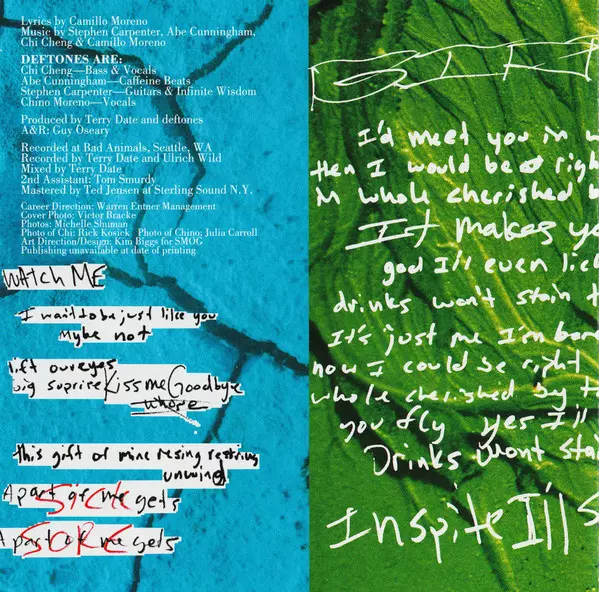 Lyrics by Camillo Moreno
Music by Stephen Carpenter, Abe Cunningham,
Chi Cheng & Camillo Moreno
DEFTONES ARE:
Chi Cheng—Bass & Vocals
Abe Cunningham—Caffeine Beats
Stephen Carpenter—Guitars & Infinite Wisdom
Chino Moreno—Vocals
Produced by Terry Date and deftones
A&R: Guy Oseary
Recorded at Bad Animals, Seattle, WA
Recorded by Terry Date and Ulrich Wild
Mixed by Terry Date
2nd Assistant: Tom Smurdy
Mastered by Ted Jensen at Sterling Sound N.Y.
Career Direction: Warren Entner Management
Cover Photo: Victor Bracke
Photos: Michelle Shuman
Photo of Chi: Rick Kosick Photo of Chino: Julia Carroll
Art Direction/Design: Kim Biggs for SMOG
Publishing unavailable at date of printing
WATCH ME
I want to be just like you
mybe not
lift our eyes
big suprire Kiss me Goodbye
where
this gift of mine resing restring
unwind
A part of me gets
SICK
A part of me gets
SORE
I'd meet you in
then I would be right
whole cherished
It makes
god I'll even lick
drinks won't stain
It's just me I'm
now I could be right
whole cherished by
you fly yes I'll
Drinks wont stai
Inspite I'll